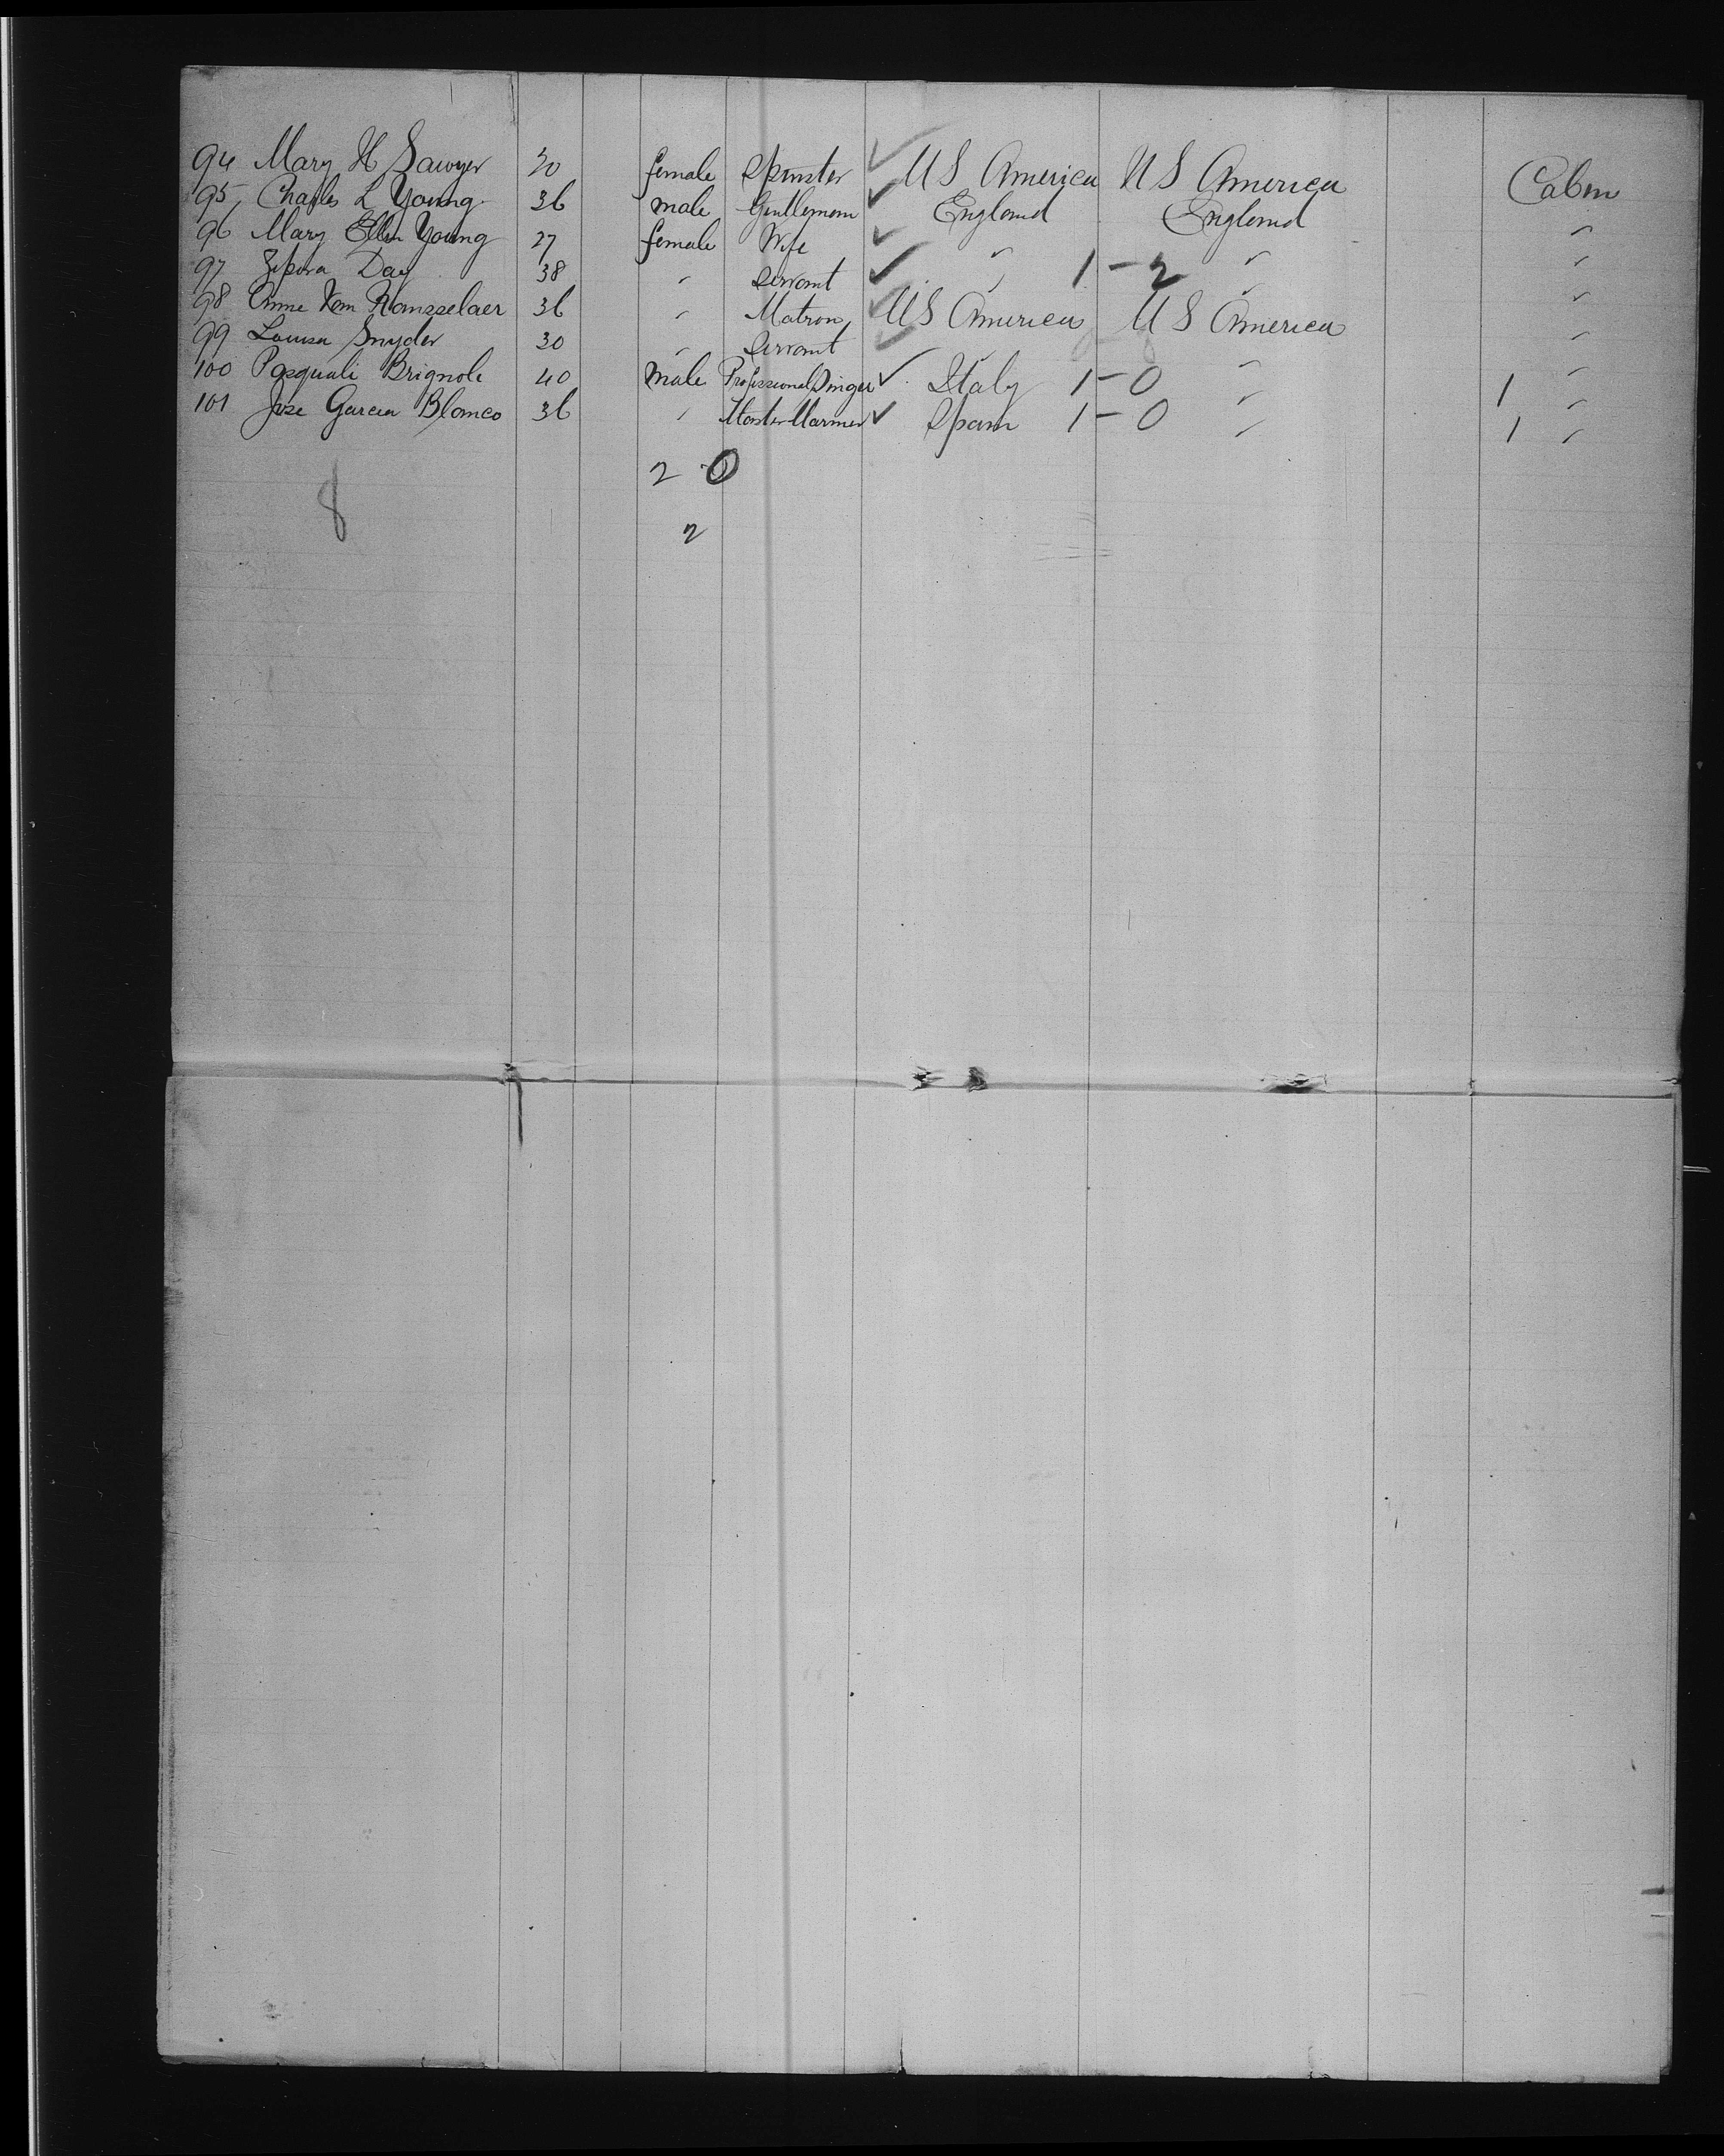 94 Mary H Sawyer 30 female Spinster ✓ US America US America Cabin
95 Charles L Young 36 male Gentleman ✓ England England "
96 Mary Ellen Young 27 female Wife ✓ " " "
97 Zipora Day 38 " Servant ✓ " 1 - 2 " "
98 Anne Van Ransselaer 36 " Matron ✓ US America US America "
99 Louisa Snyder 30 " Servant ✓ " " "
100 Pasquali Brignole 40 male Professional Singer ✓ Italy 1 - 0 " 1 "
101 Jose Garcia Blanco 36 " Master Mariner ✓ Spain 1 - 0 " 1 "
2 0
8
2